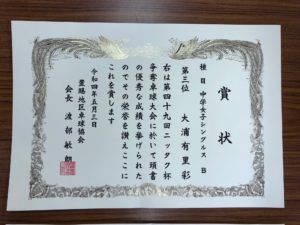 賞状
種目 中学女子シングルス B
第三位 大浦有里彩
右は第四十九回ニッタク杯
争奪卓球大会に於いて頭書
の優秀な成績を挙げられた
のでその栄誉を讃えここに
これを賞します
令和四年五月三日
豊勝地区卓球協会
会長 渡部敏朗